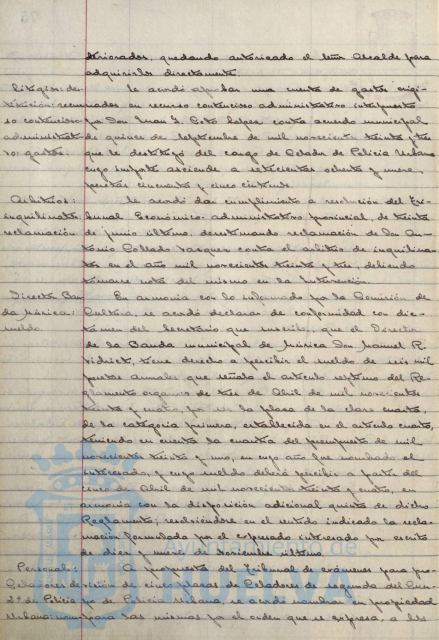 teriorados, quedando autorizado el Señor Alcalde para
adquirirlos directamente.
Litigios: des- Se acordó aprobar una cuenta de gastos origi-
titución: recur- nados en recurso contencioso administrativo interpuesto
so contencioso por Don Juan J. Soto López contra acuerdo municipal
administrati- de quince de Septiembre de mil novecientos treinta y tres
vo: gastos. que le destituyó del cargo de Celador de Policía Urbana
cuyo importe asciende a setecientas ochenta y nueve
pesetas cincuenta y cinco céntimos.
Arbitrios: Se acordó dar cumplimiento a resolución del Tri-
inquilinatos: bunal Económico-administrativo provincial, de treinta
reclamación de junio último, desestimando reclamación de Don An-
tonio Collado Vasquez contra el arbitrio de inquilina-
tos en el año mil novecientos treinta y tres, debiendo
tomarse nota del mismo en la Intervención.
Director Ban- En armonía con lo informado por la Comisión de
da Música: Cultura, se acordó declarar de conformidad con dic-
sueldo tamen del Secretario que suscribe, que el Director
de la Banda municipal de Música Don Manuel R.
tiene derecho a percibir el sueldo de seis mil
pesetas anuales que señala el artículo séptimo del Re-
glamento orgánico de tres de Abril de mil novecientos
treinta y cuatro, por ser la plaza de la clase cuarta,
de la categoría primera, establecida en el artículo cuarto,
teniendo en cuenta la cuantía del presupuesto de mil
novecientos treinta y uno, en cuyo año fue nombrado el
interesado, y cuyo sueldo deberá percibir a partir del
cinco de Abril de mil novecientos treinta y cuatro, en
armonía con la disposición adicional quinta de dicho
Reglamento; resolviéndose en el sentido indicado la recla-
mación formulada por el expresado interesado por escrito
de diez y nueve de Noviembre último.
Personal: A propuesta del Tribunal de exámenes para pro-
Celadores de visión de cinco plazas de Celadores de segunda del Cuer-
2ª de Policía po de Policía Urbana, se acordó nombrar en propiedad
Urbana: nom- para las mismas por el orden que se expresa, a los
Ayuntamiento de
HUELVA